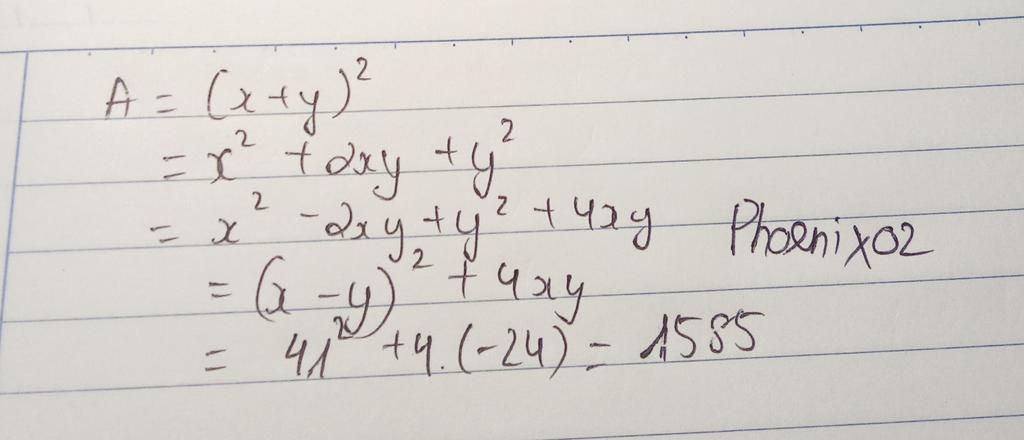 A = (x+y)²
= x² + 2xy + y²
= x² - 2xy + y² + 4xy
Phoenix02
= (x - y)² + 4xy
= 41² + 4.(-24) = 1585